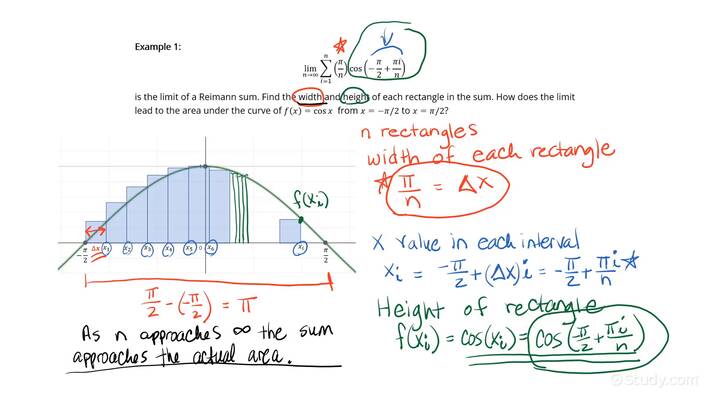 Example 1:
lim n→∞ n ∑ i=1 (π/n) cos(−π/2 + πi/n)
is the limit of a Reimann sum. Find the width and height of each rectangle in the sum. How does the limit
lead to the area under the curve of f(x) = cos x from x = −π/2 to x = π/2?
n rectangles
width of each rectangle
π/n = Δx
f(xᵢ)
−π/2 Δx x₁ x₂ x₃ x₄ x₅ 0 x₆ xᵢ π/2
x value in each interval
xᵢ = −π/2 + (Δx)i = −π/2 + π/n i
π/2 − (−π/2) = π
Height of rectangle
f(xᵢ) = cos(xᵢ) = cos(π/2 + πi/n)
As n approaches ∞ the sum
approaches the actual area.
Study.com